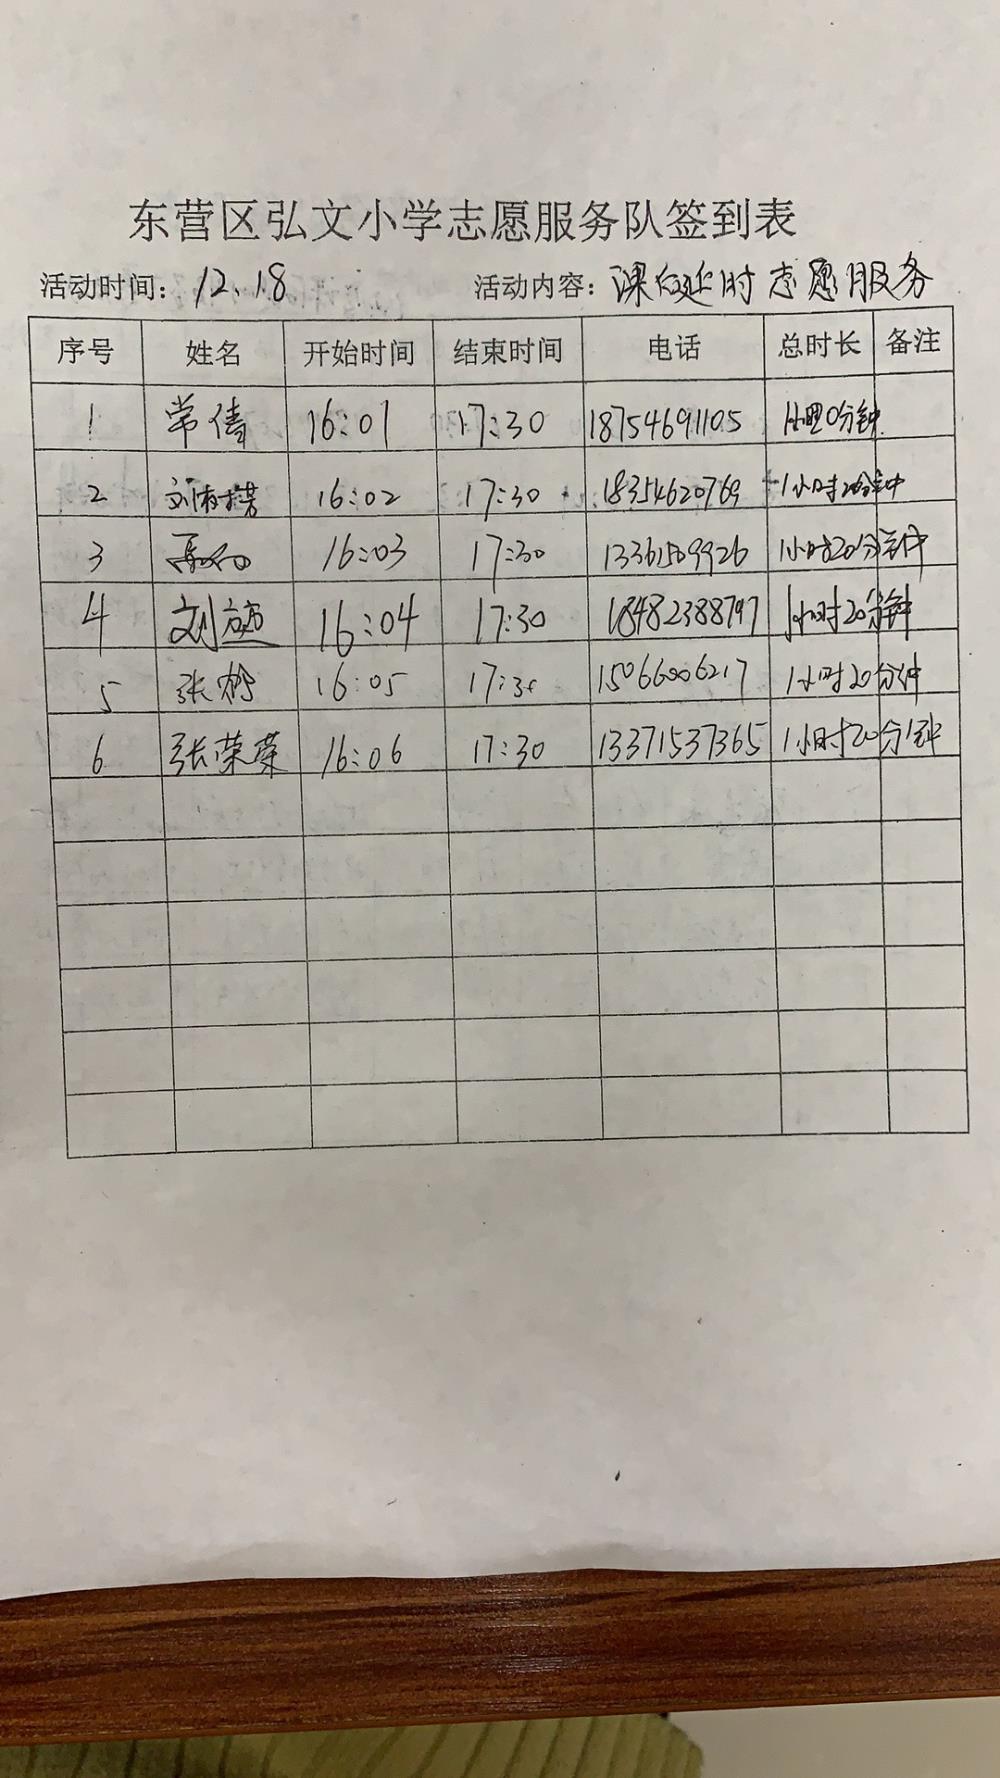 东营区弘文小学志愿服务队签到表
活动时间：12.18 活动内容：课后延时志愿服务
序号 姓名 开始时间 结束时间 电话 总时长 备注
1 常倩 16:01 17:30 18754691105
2 16:02 17:30 18354620769 1小时20分钟
3 16:03 17:30 13361509926 1小时20分钟
4 刘 16:04 17:30 18482388797 1小时20分钟
5 张 16:05 17:30 15066006217 1小时20分钟
6 张荣荣 16:06 17:30 13371537365 1小时20分钟